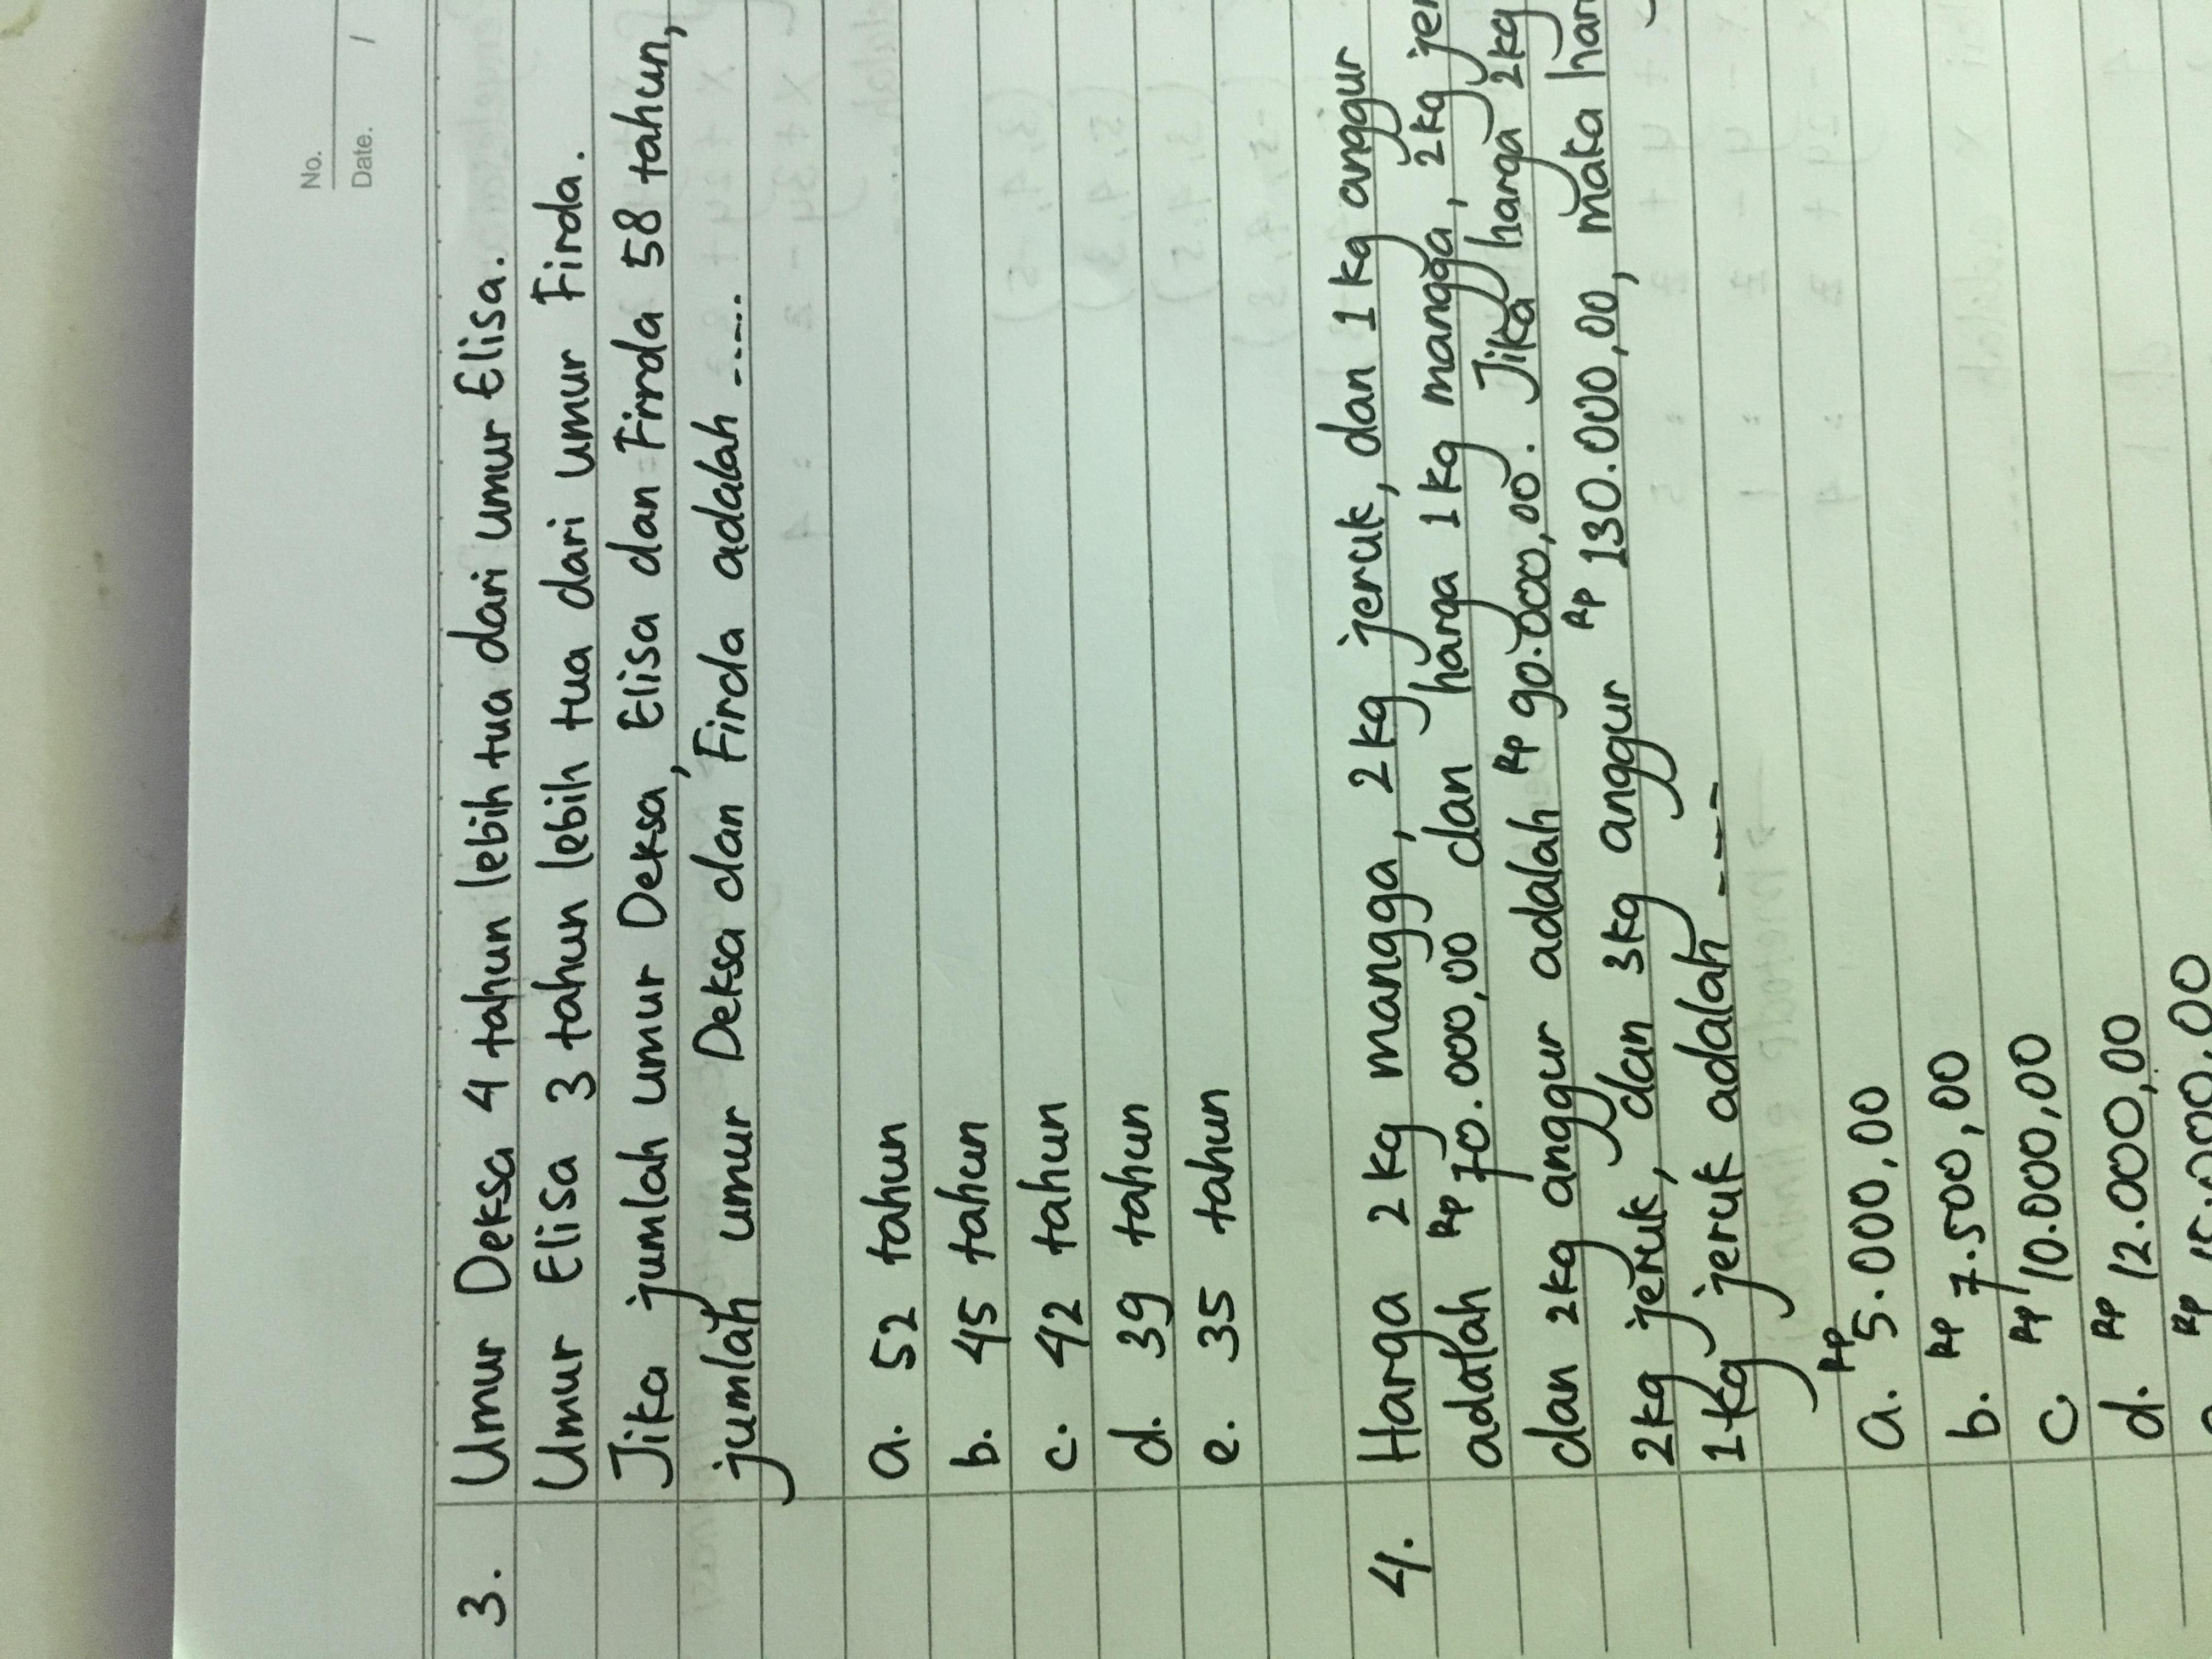 No.
Date. /
3. Umur Deksa 4 tahun lebih tua dari umur Elisa.
Umur Elisa 3 tahun lebih tua dari umur Firda.
Jika jumlah umur Deksa, Elisa dan Firda 58 tahun,
jumlah umur Deksa dan Firda adalah .....
a. 52 tahun
b. 45 tahun
c. 42 tahun
d. 39 tahun
e. 35 tahun
4. Harga 2 kg mangga, 2 kg jeruk, dan 1 kg anggur
adalah Rp 70.000,00 dan harga 1 kg mangga, 2 kg
dan 2 kg anggur adalah Rp 90.000,00. Jika harga 2 kg
2 kg jeruk, dan 3 kg anggur Rp 130.000,00, maka
1 kg jeruk adalah ....
a. Rp 5.000,00
b. Rp 7.500,00
c Rp 10.000,00
d. Rp 12.000,00
Rp